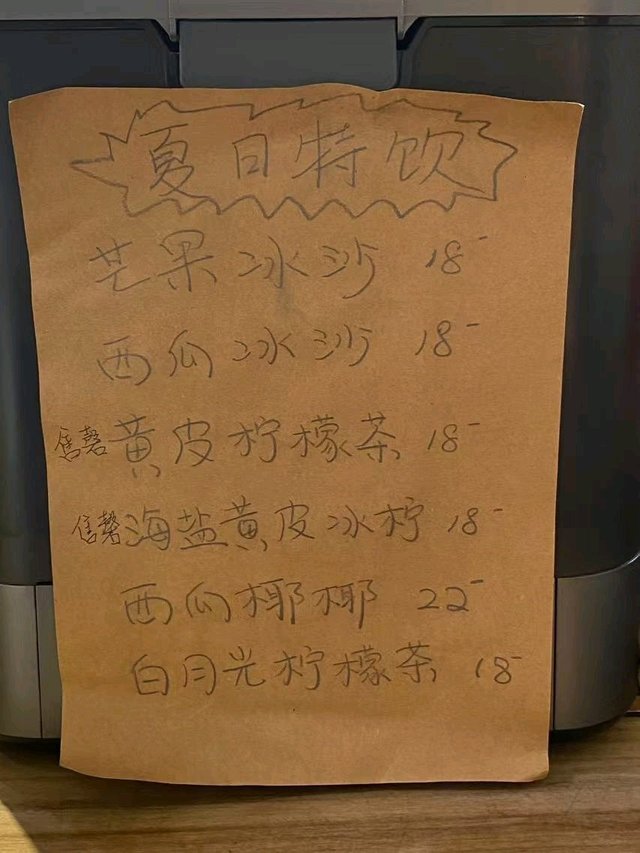 夏日特饮
芒果冰沙 18-
西瓜冰沙 18-
售磬黄皮柠檬茶 18-
售磬海盐黄皮冰柠 18-
西瓜椰椰 22-
白月光柠檬茶 18-